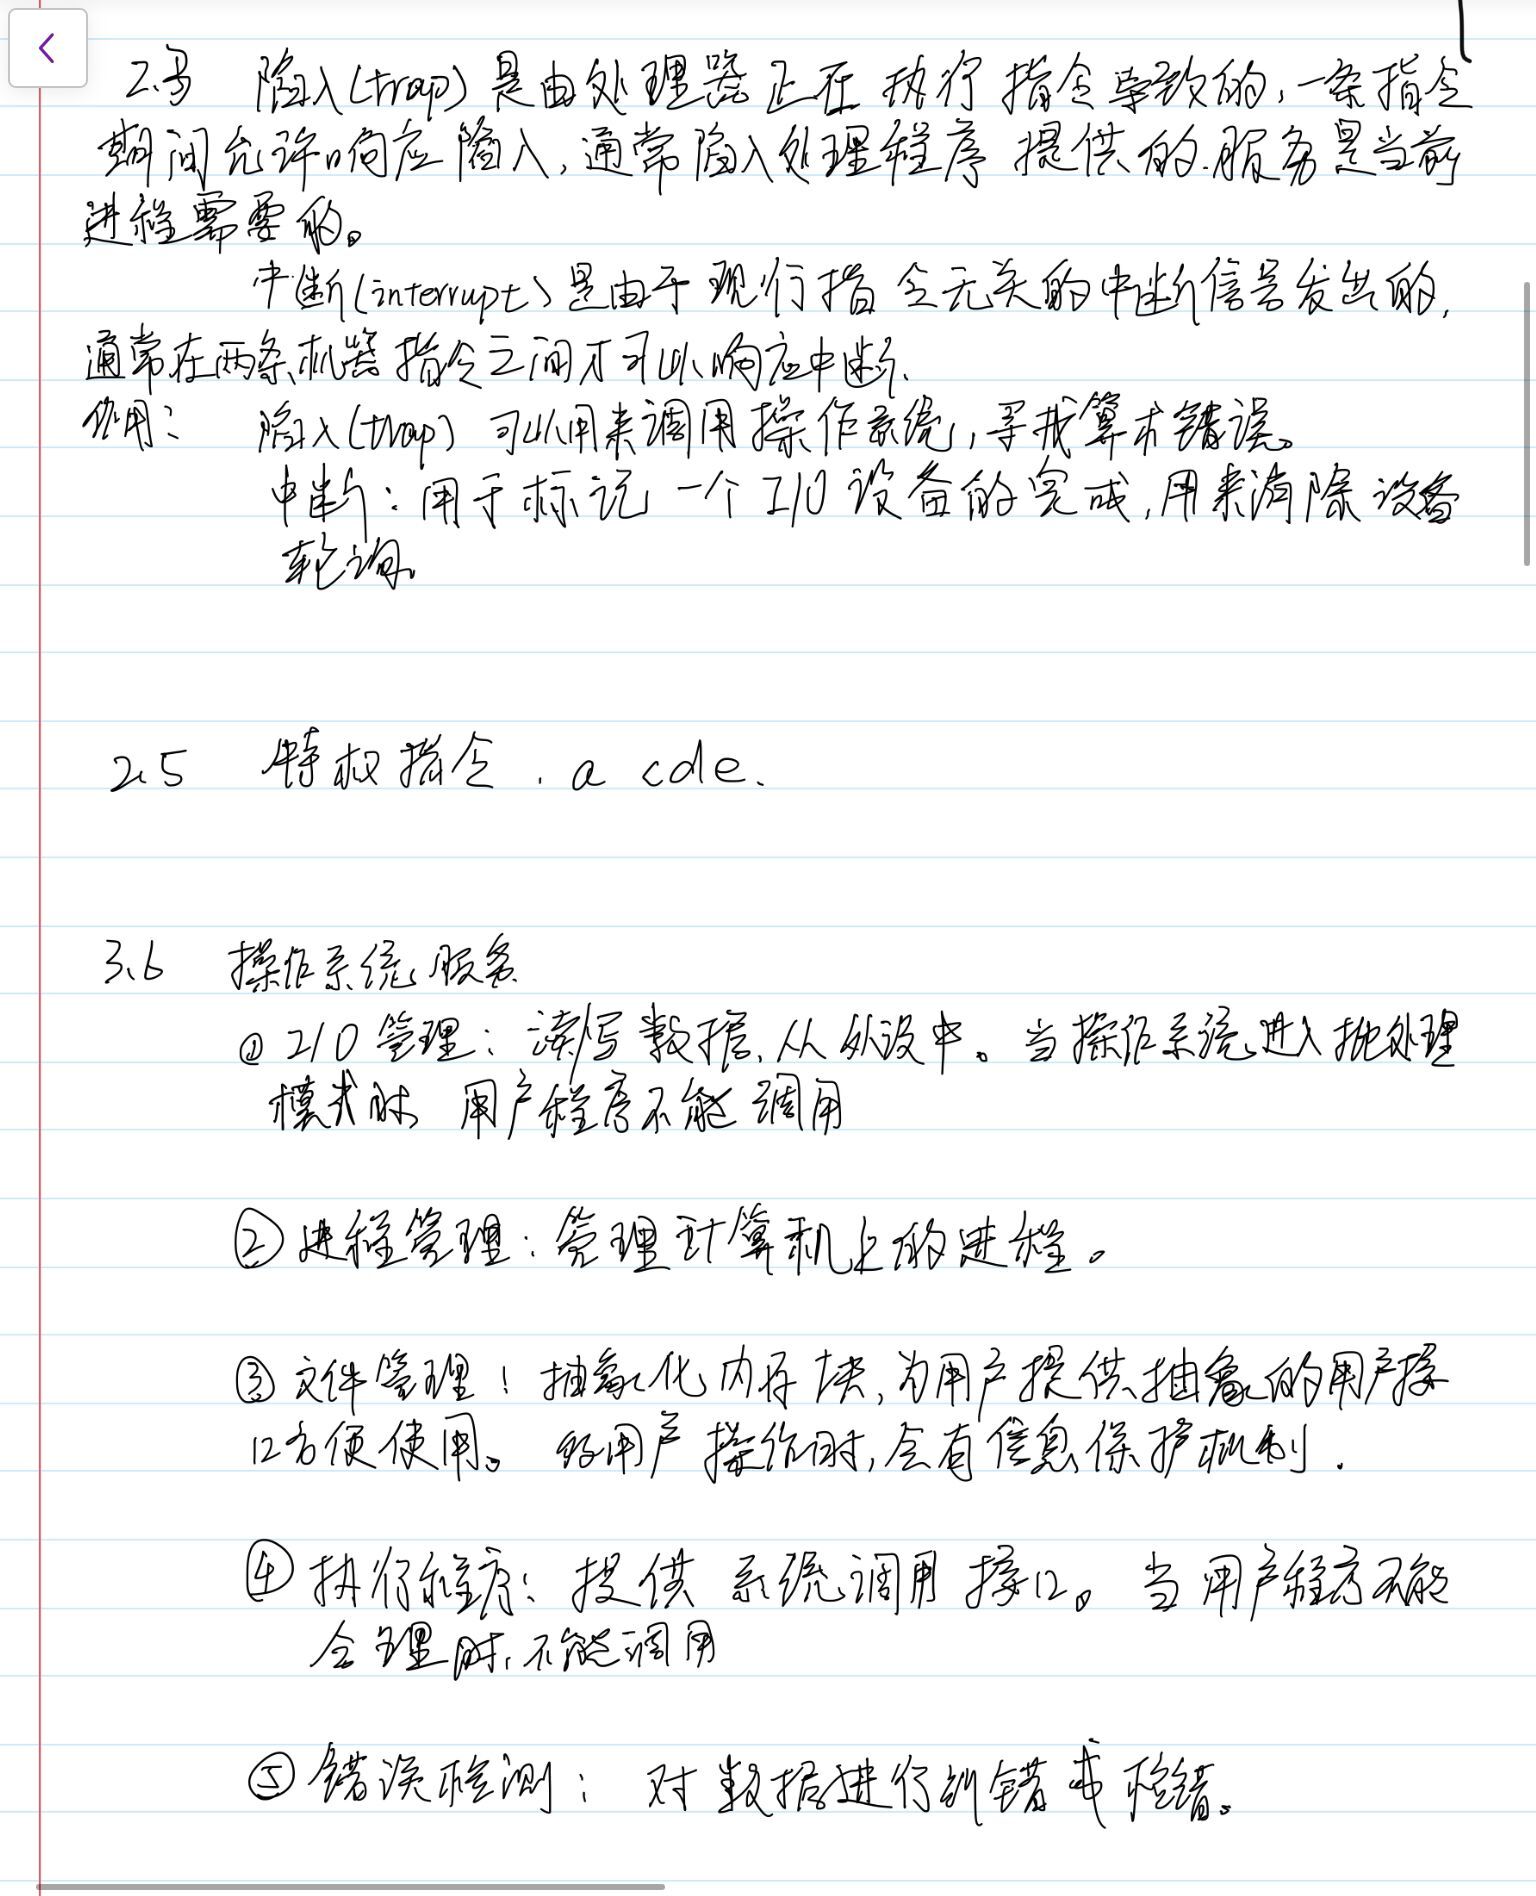 2.3 陷入(trap)是由处理器正在执行指令导致的,一条指令
期间允许响应陷入,通常陷入处理程序提供的服务是当前
进程需要的。
中断(interrupt)是由于现行指令无关的中断信号发出的,
通常在两条机器指令之间才可以响应中断.
作用: 陷入(trap)可以用来调用操作系统,寻找算术错误。
中断:用于标记一个I/O设备的完成,用来消除设备
轮询.
2.5 特权指令. a cde.
3.6 操作系统服务
① I/O管理:读写数据,从外设中。当操作系统进入批处理
模式时 用户程序不能调用
② 进程管理:管理计算机上的进程。
③ 文件管理:抽象化内存块,为用户提供抽象的用户接
口方便使用。 多用户操作时,会有信息保护机制.
④ 执行程序:提供系统调用接口。当用户程序不能
合理时,不能调用
⑤ 错误检测:对数据进行纠错或检错。